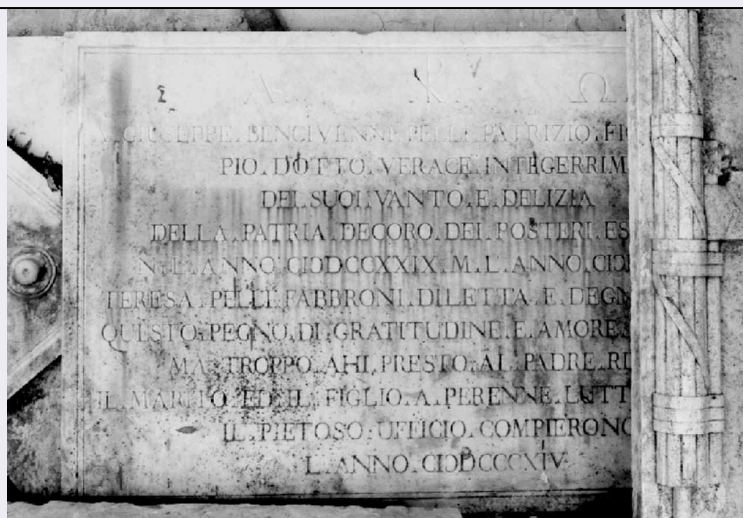 A ☧ Ω
GIUSEPPE . BENCIVENNI PELLI PATRIZIO . FIO
PIO . DOTTO . VERACE . INTEGERRIM
DEI . SUOI . VANTO . E . DELIZIA
DELLA . PATRIA . DECORO . DEI . POSTERI . ES
N . L . ANNO . CIↃDCCXXIX . M . L . ANNO .
TERESA . PELLI . FABBRONI . DILETTA . E . DEGN
QUESTO . PEGNO . DI . GRATITUDINE . E . AMORE
MA . TROPPO . AHI . PRESTO . AL . PADRE . RI
IL . MARITO . ED . IL . FIGLIO . A . PERENNE . LUTT
IL . PIETOSO . UFFICIO . COMPIERONO
L . ANNO . CIↃDCCCXIV